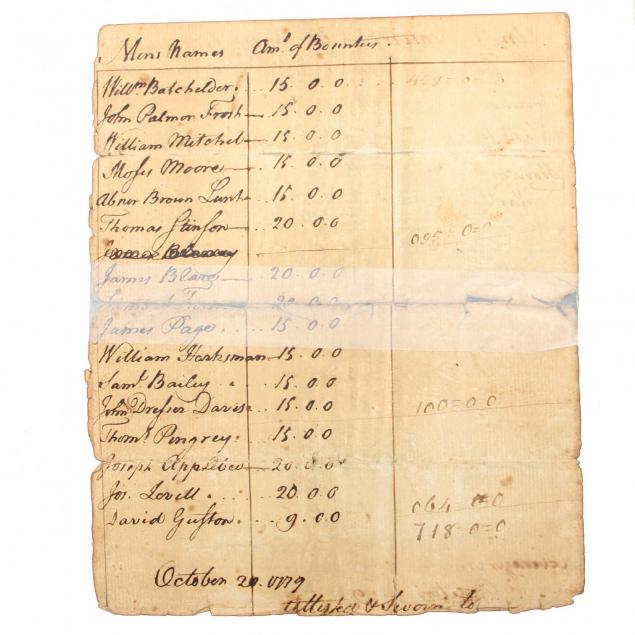 Mens Names Amt. of Bounties.
Willm Batchelder 15.0.0
John Palmer Frost 15.0.0
William Mitchel 15.0.0
Moses Moore 15.0.0
Abner Brown Lunt 15.0.0
Thomas Stinson 20.0.0
095=0=0
James 20.0.0
20.0.0
James Page 15.0.0
William Harksman 15.0.0
Saml. Bailey 15.0.0
John Dresser Davis 15.0.0 100=0.0
Thoms. Pingrey 15.0.0
Joseph Applebee 20.0.0
Jos. Lovell 20.0.0
064=0
David Guston 9.0.0 718=0=0
October 20. 1779
attested & Sworn to